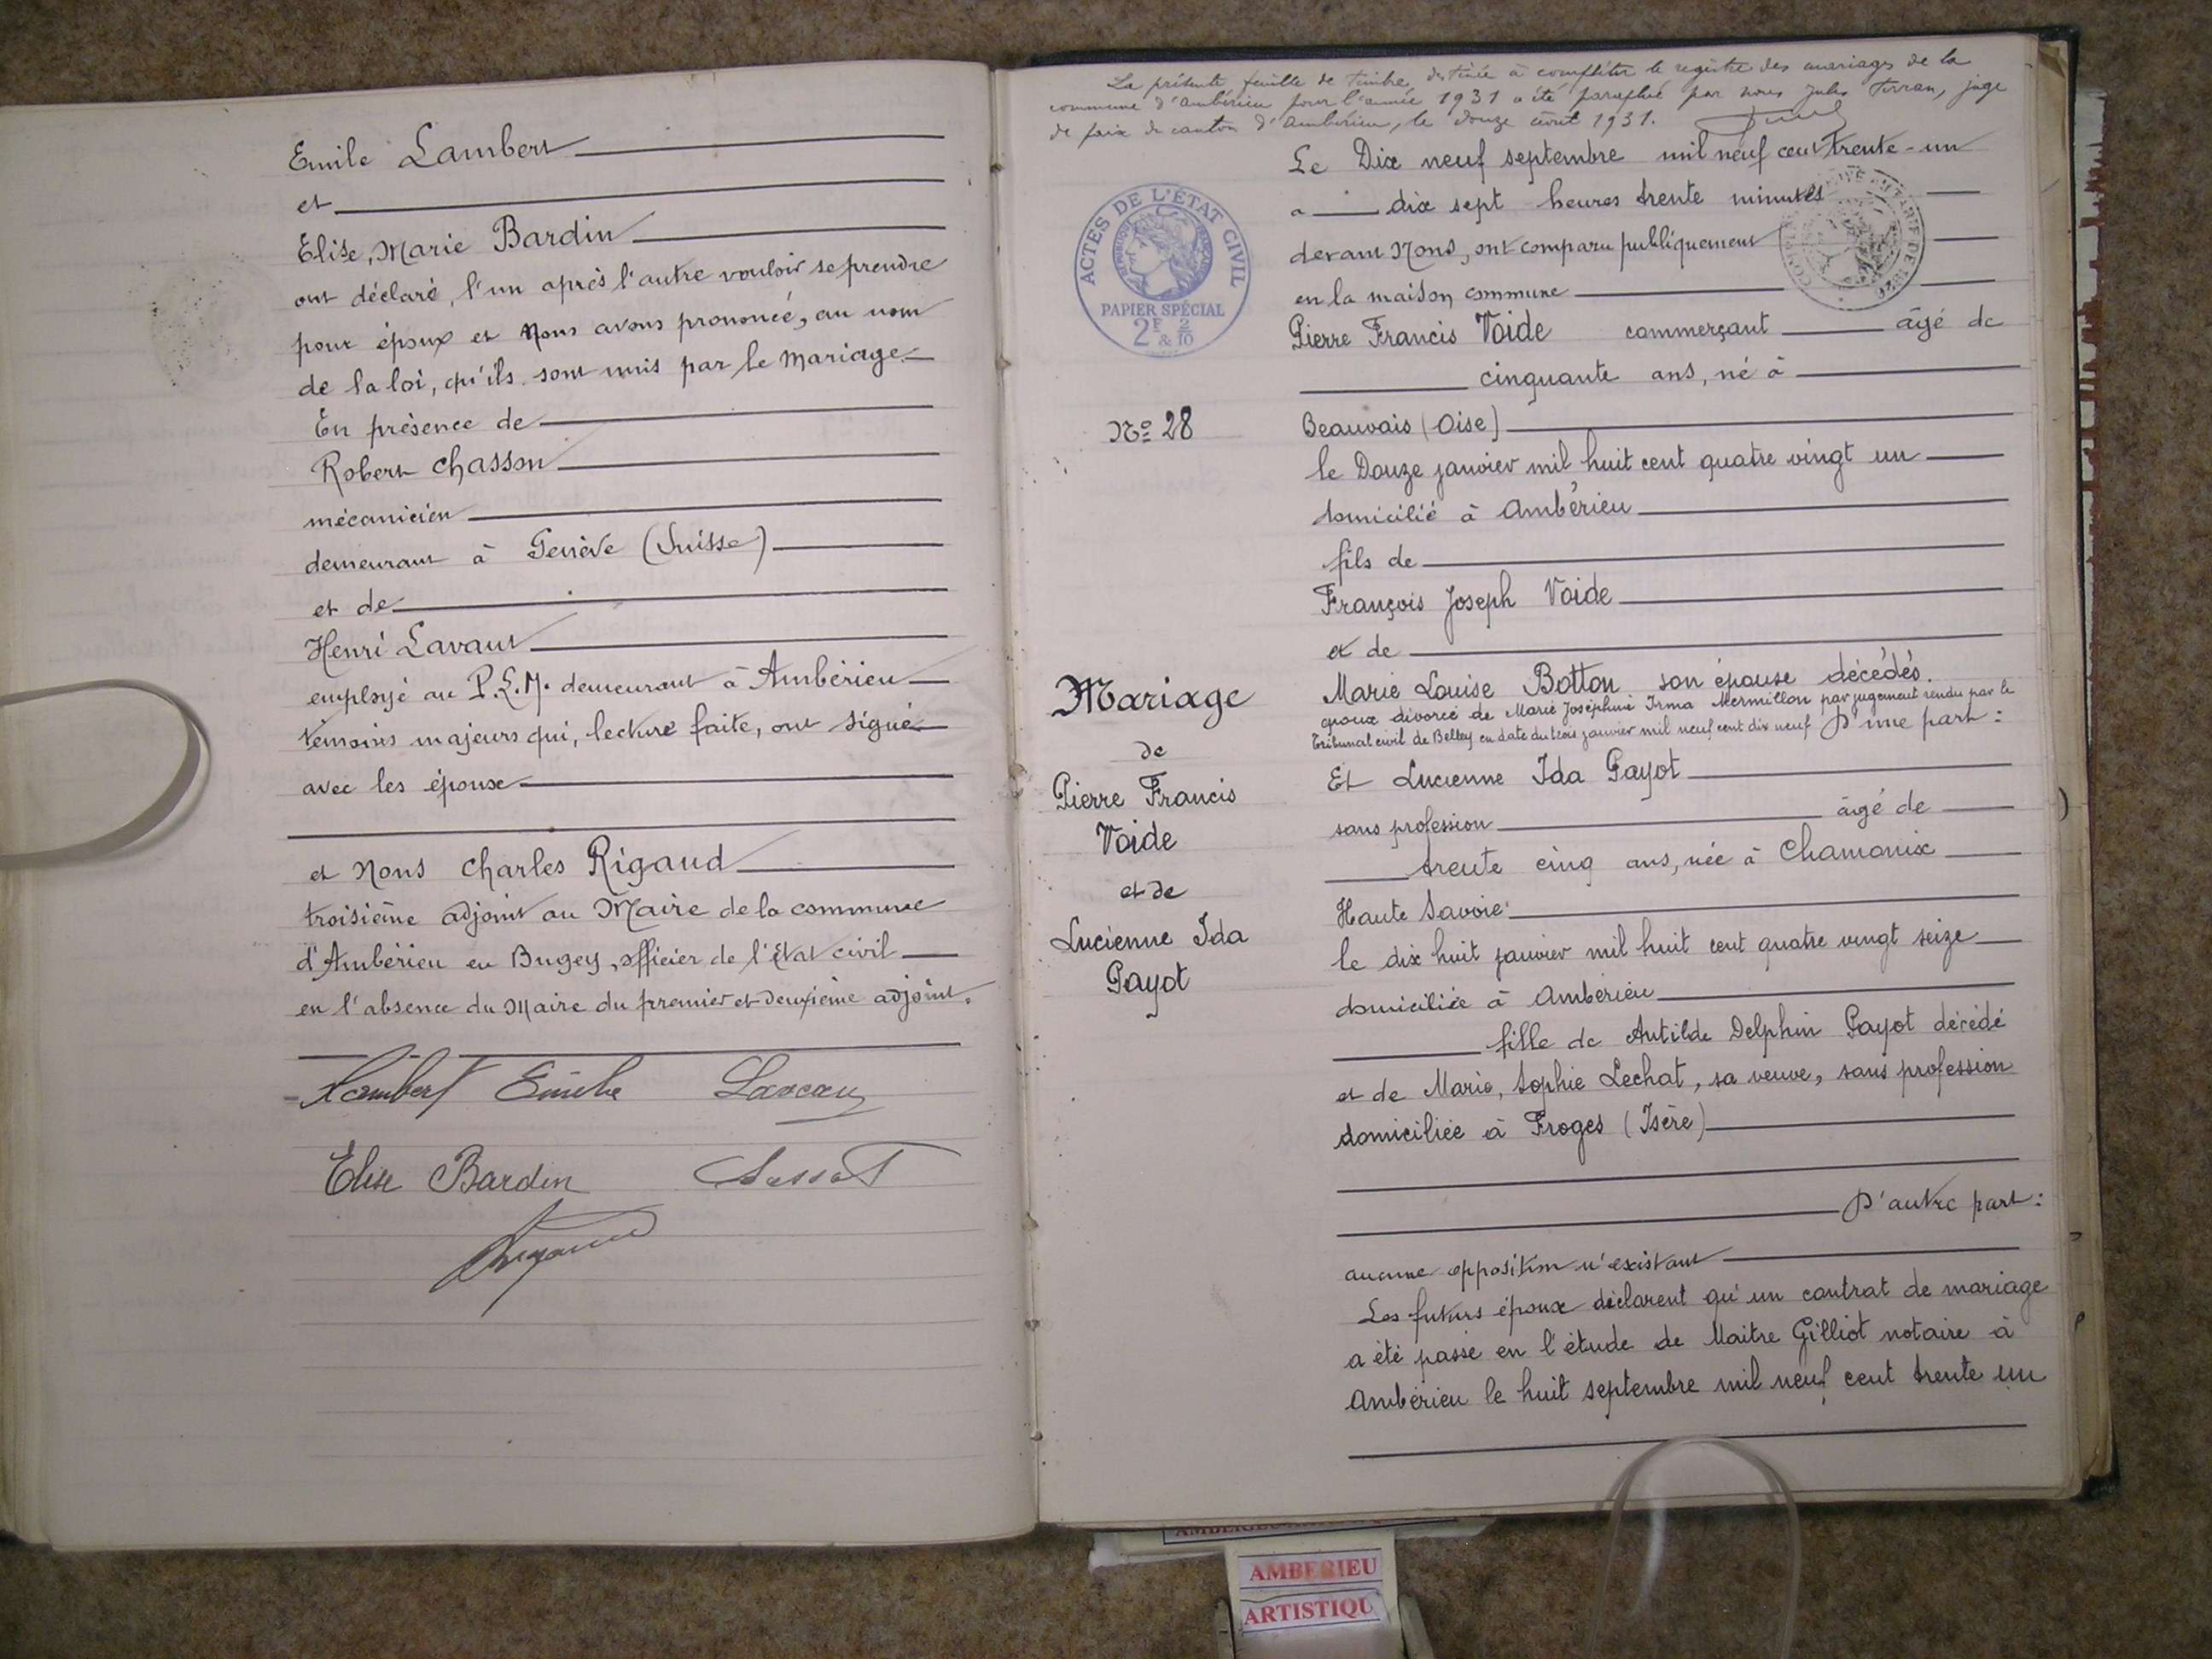 Emile Lambert
et
Elise, Marie Bardin
ont déclaré, l'un après l'autre vouloir se prendre
pour époux et Nous avons prononcé, au nom
de la loi, qu'ils sont unis par le Mariage
En présence de
Robert Chasson
mécanicien
demeurant à Genève (Suisse)
et de
Henri Lavaut
employé au P.L.M. demeurant à Ambérieu
témoins majeurs qui, lecture faite, ont signé
avec les époux
et Nous Charles Rigaud
troisième adjoint au Maire de la commune
d'Ambérieu en Bugey, officier de l'Etat civil
en l'absence du Maire du premier et deuxième adjoint.
Lambert Emile
Elise Bardin
La présente feuille de timbre destinée à compléter le registre des mariages de la
commune d'Ambérieu pour l'année 1931 a été paraphé par nous Jules Terran, juge
de paix du canton d'Ambérieu, le douze août 1931.
ACTES DE L'ÉTAT CIVIL
RÉPUBLIQUE FRANÇAISE
PAPIER SPÉCIAL
2F & 2/10
No 28
Mariage
de
Pierre Francis
Voide
et de
Lucienne Ida
Payot
Le Dix neuf septembre mil neuf cent trente-un
a dix sept heures trente minutes
devant Nous, ont comparu publiquement
en la maison commune
Pierre Francis Voide commerçant âgé de
cinquante ans, né à
Beauvais (Oise)
le Douze janvier mil huit cent quatre vingt un
domicilié à Ambérieu
fils de
François Joseph Voide
et de
Marie Louise Botton son épouse décédés.
époux divorcé de Marie Joséphine Irma Mermillon par jugement rendu par le
Tribunal civil de Belley en date du trois janvier mil neuf cent dix neuf D'une part :
Et Lucienne Ida Payot
sans profession âgé de
trente cinq ans, née à Chamonix
Haute Savoie
le dix huit janvier mil huit cent quatre vingt seize
domiciliée à Ambérieu
fille de Autilde Delphin Payot décédé
et de Marie, Sophie Lechat, sa veuve, sans profession
domiciliée à Froges (Isère)
D'autre part :
aucune opposition n'existant
Les futurs époux déclarent qu'un contrat de mariage
a été passé en l'étude de Maitre Gilliot notaire à
Ambérieu le huit septembre mil neuf cent trente un
AMBERIEU
ARTISTIQU